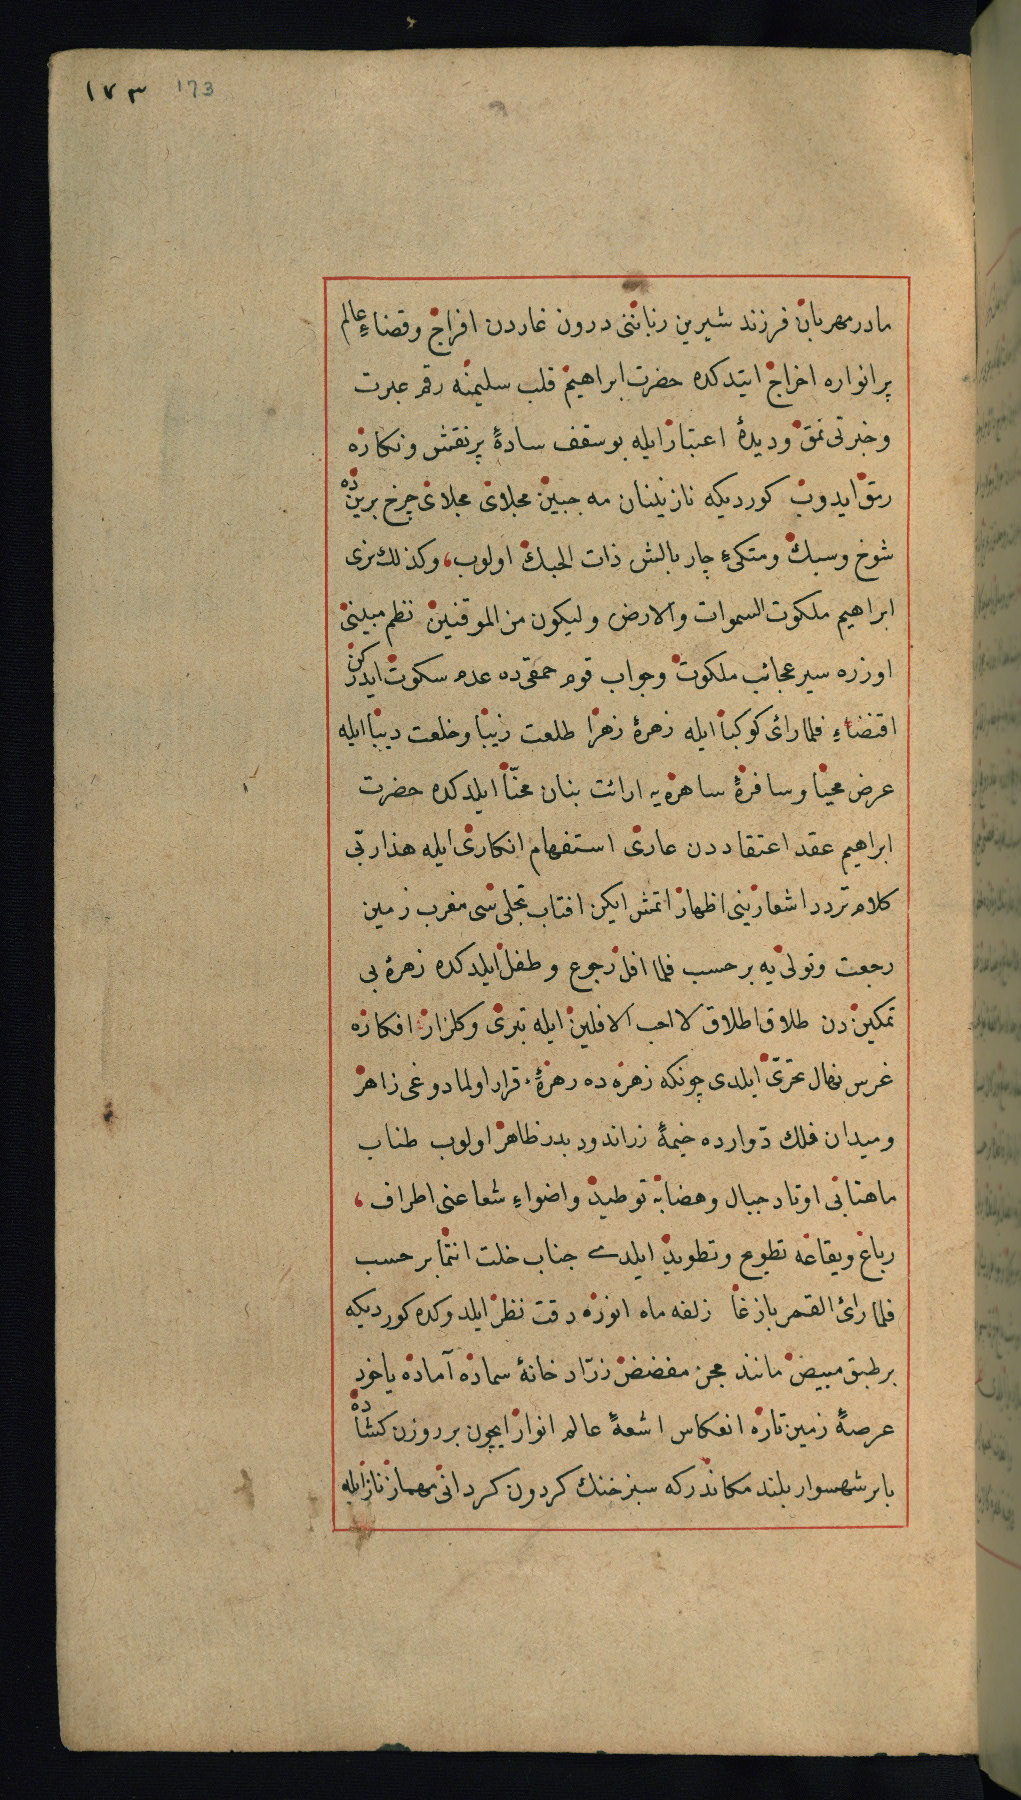 ١٧٣ 173
مادر مهربان فرزند شيرين زباننى درون غاردن افراج وقضاءِ عالم
پر انواره اخراج ايتدكده حضرت ابراهيم قلب سليمنه رقم عبرت
وخبرتى نمق وديدۀ اعتبار ايله بو سقف سادۀ پر نقش ونكاره
رمق ايدوب كورديكه نازنينان مه جبين مجلاى مجلاى چرخ برينده
شوخ وسبك ومتكىءِ چار بالش ذات الحبك اولوب، وكذلك نرى
ابراهيم ملكوت السموات والارض وليكون من الموقنين نظم مبينى
اوزره سير عجائب ملكوت وجواب قوم حمقى ده عدم سكوت ايدركن
اقتضاءِ فلما راى كوكبا ايله زهرۀ زهرا طلعت زيبا وخلعت ديبا ايله
عرض محيا وسافرۀ ساهره يه ارائت بنان محنّا ايلدكده حضرت
ابراهيم عقد اعتقاددن عارى استفهام انكارى ايله هذا ربّى
كلام تردد اشعارينى اظهار اتمش ايكن افتاب تجلى سى مغرب زمين
رجعت وتولى يه بر حسب فلما افل رجوع وطفل ايلدكده زهرۀ بى
تمكين دن طلاق اطلاق لا احب الافلين ايله تبرى وكلزار افكاره
غرس نهال تحرّى ايلدى چونكه زهره ده رهزۀ قرار اولمادوغى زاهر
وميدان فلك دوارده خيمۀ زراندود بدر ظاهر اولوب طناب
ماهتابى اوتاد جبال وهضابه توطيد واضواءِ شعاعنى اطراف،
رباغ وبقاعه تطويع وتطويد ايلدى جناب خلت انتما بر حسب
فلما راى القمر بازغا زلفه ماه انوره دقت نظر ايلدوكده كورديكه
بر طبق مبيض مانند مجن مفضض زرّاد خانۀ سماده آماده ياخود
عرصۀ زمين تاره انعكاس اشعۀ عالم انوار ايچون بر روزن كشاده
يا بر شهسوار بلند مكاندر كه سبز خنك كردون كردانى مهماز ناز ايله